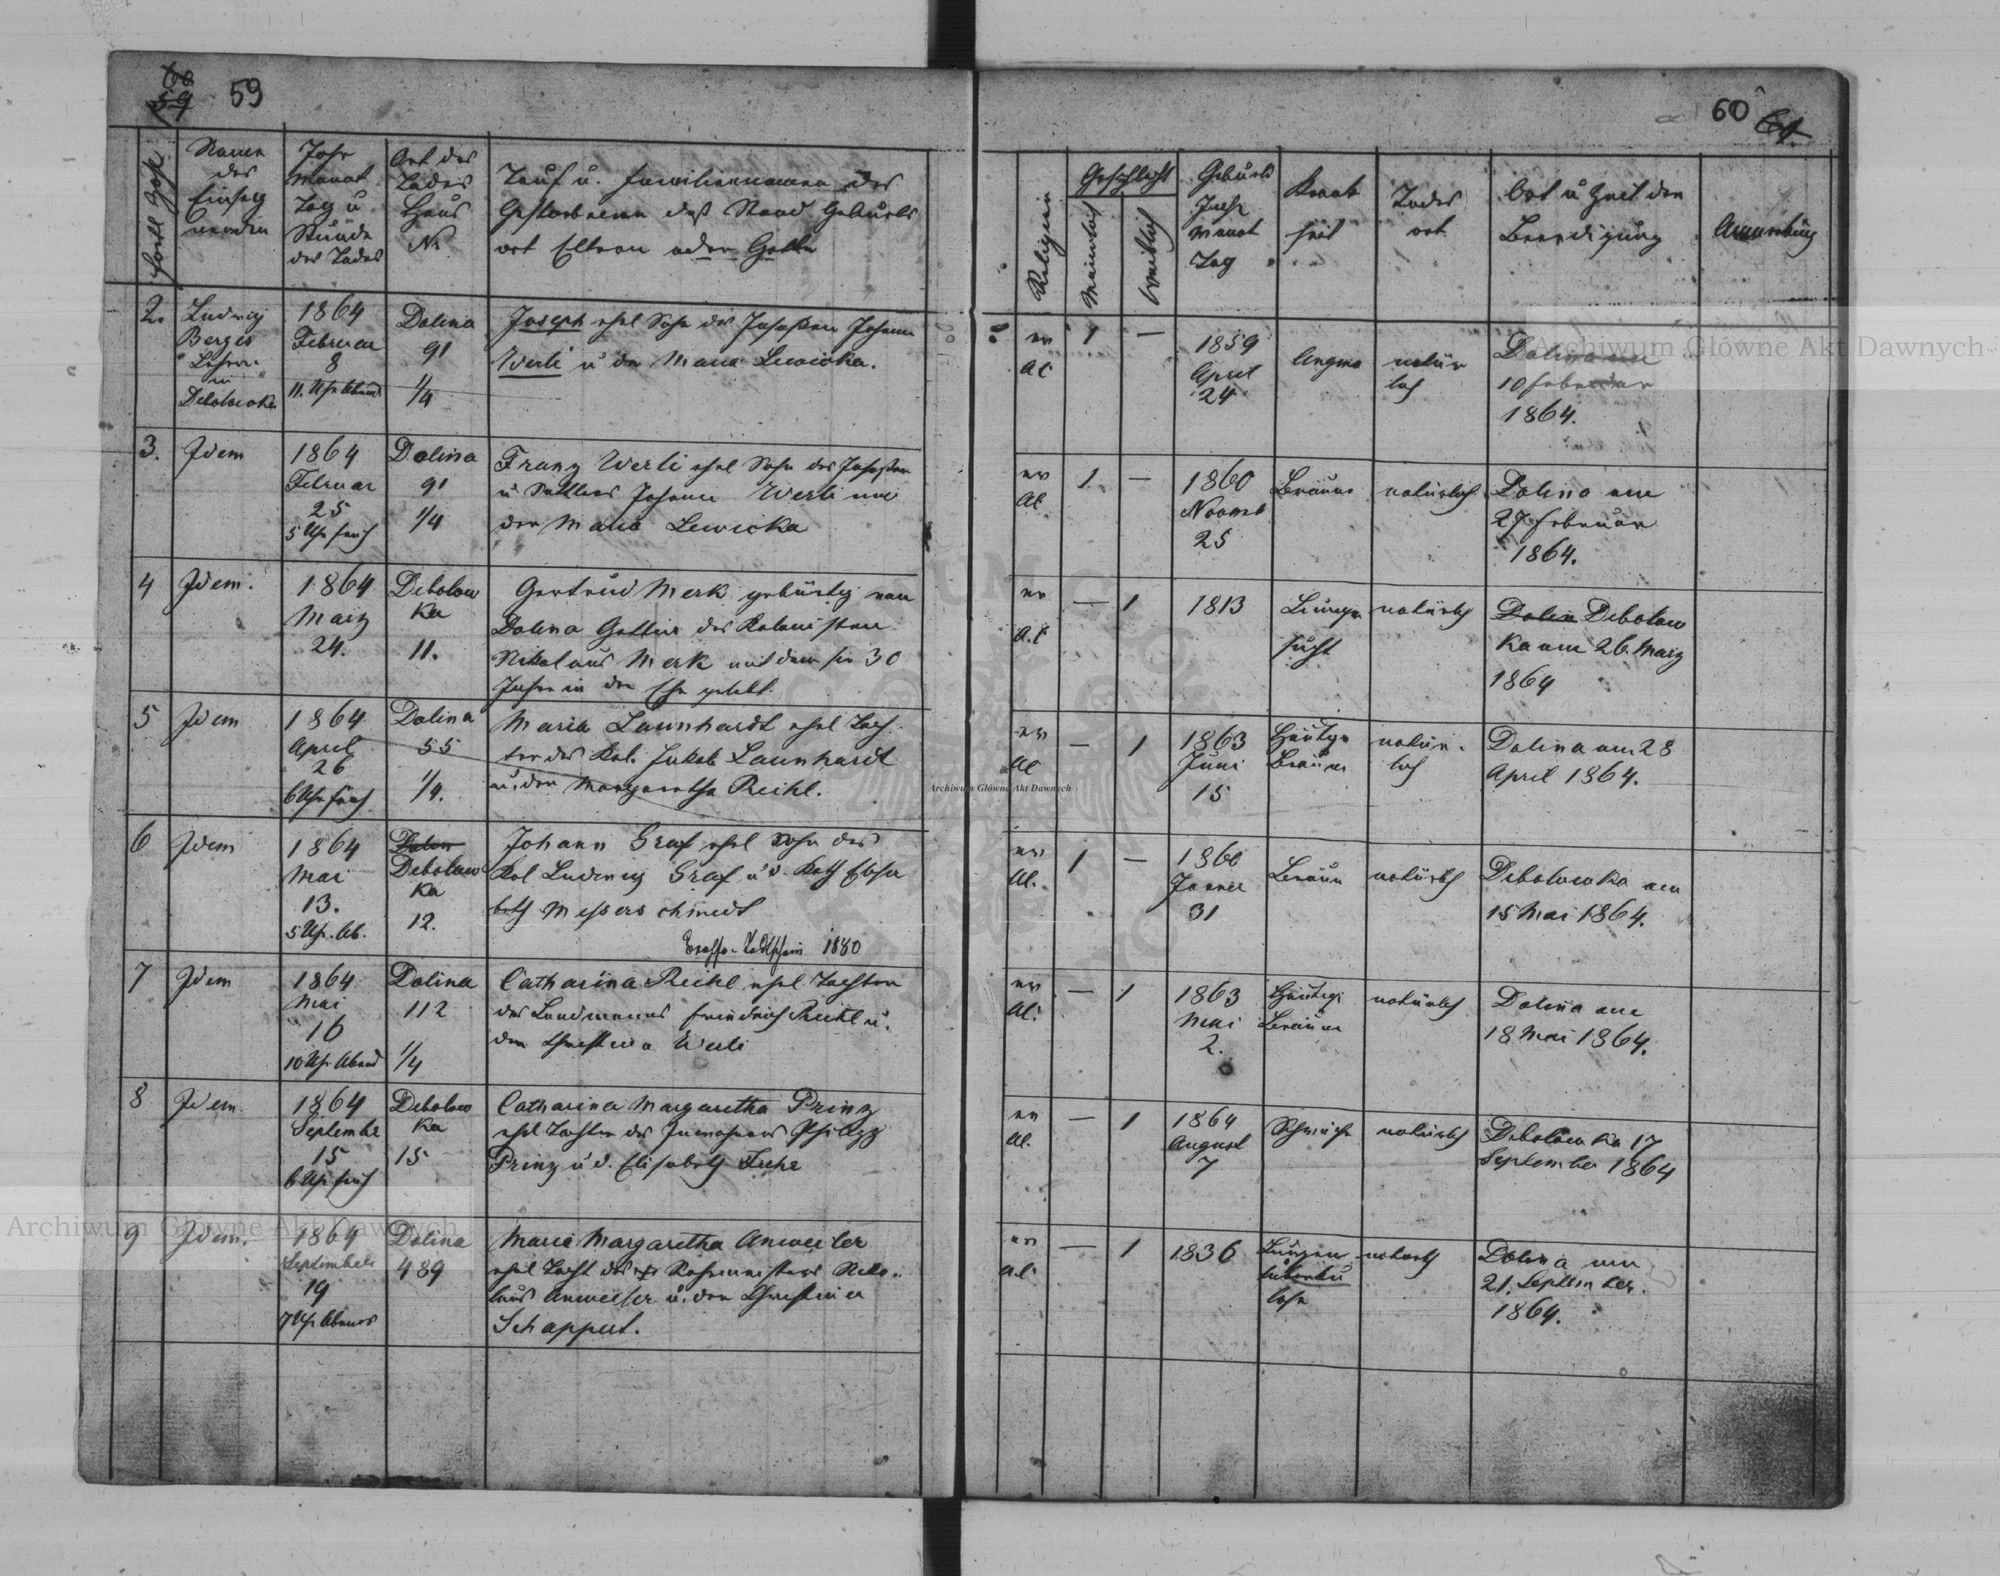 59
60
Forll Zahl
Namen
des
Einseg
nenden
Jahr
Monat
Tag u
Stunde
des Todes
Ort des
Todes
Haus
Nr
Tauf u. Familiennamen des
Gestorbenen dess Stand Geburts
ort Eltern oder Gatte
Religion
Geschlecht
Männlich
Weiblich
Geburts
Jahr
Monat
Tag
Krank
heit
Todes
art
Ort u Zeit der
Beerdigung
Anmerkung
2.
Ludwig
Berges
Lehrer
in
Debolowka
1864
Februar
8
11. Uhr Abend
Dolina
91
1/4
Joseph ehel Sohn des Insassen Johann
Werli u der Maria Lewicka.
ev
AC
1
—
1859
April
24
Angina
natür
lich
Dolina am
10 Februar
1864.
3.
Idem
1864
Februar
25
5 Uhr früh
Dolina
91
1/4
Franz Werli ehel Sohn des Insassen
u Sattlers Johann Werli und
der Maria Lewicka
ev
AC
1.
—
1860
Novemb
25
Bräune
natürlich
Dolina am
27 Februar
1864.
4
Idem.
1864
März
24.
Debolow
ka
11.
Gertrud Merk gebürtig von
Dolina Gattin des Kolonisten
Nikolaus Merk mit dem sie 30
Jahre in der Ehe gelebt.
ev
A.C
—
1
1813
Lungen
sucht
natürlich
Debolow
ka am 26. März
1864
5
Idem
1864
April
26
6 Uhr früh
Dolina
55
1/4.
Maria Launhardt ehel Toch
ter des Kol. Jakob Launhardt
u. der Margaretha Reihl.
ev
AC
—
1
1863
Juni
15
Häutige
Bräune
natür.
lich
Dolina am 28
April 1864.
6
Idem
1864
Mai
13.
5 Uhr. Ab.
Debolow
ka
12.
Johann Graf ehel Sohn des
Kol Ludwig Graf u d. Kath Elisa
beth Messerschmidt
1880
ev
AC.
1
—
1860
Janner
31
Bräun
natürlich
Debolowka am
15 Mai 1864.
7
Idem
1864
Mai
16
10 Uhr Abend
Dolina
112
1/4
Catharina Reihl ehel Tochter
des Landmanns Friedrich Reihl u.
der Christina Werli
ev
AC.
—
1
1863
Mai
2.
Häutige
Bräune
natürlich
Dolina am
18 Mai 1864.
8
Idem
1864
September
15
6 Uhr früh
Debolow
ka
15
Catharina Margaretha Prinz
ehel Tochter des Inwohners Philipp
Prinz u d. Elisabeth
ev
AC.
—
1
1864
August
7
Schwäche
natürlich
Debolowka 17
September 1864
9
Idem.
1864
September
19
7 Uhr Abends
Dolina
489
Maria Margaretha Anweiler
ehel Tocht des Niko..
laus Anweiler u. der Christina
Schappert.
ev
A.C.
—
1
1836
Lungen
tuberku
lose
natürlich
Dolina am
21. September
1864.
Archiwum Główne Akt Dawnych
Archiwum Główne Akt Dawnych
Archiwum Główne Akt Dawnych